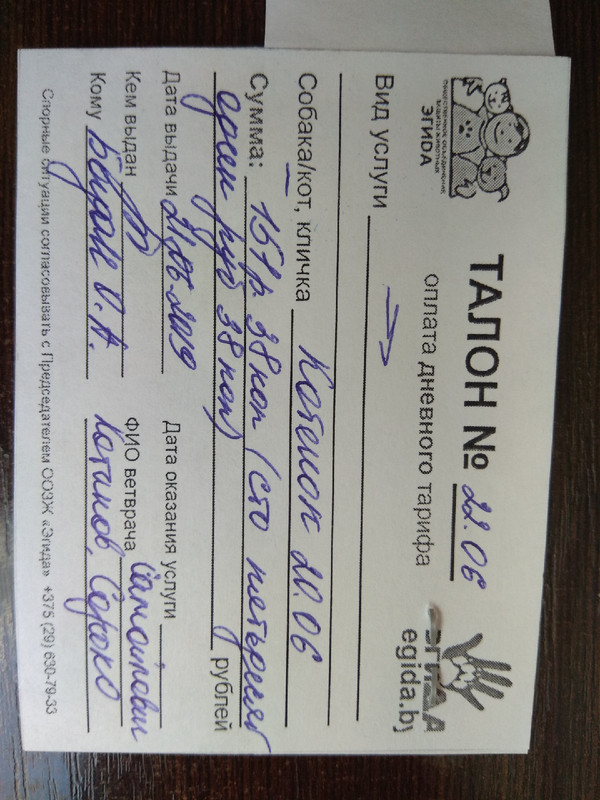 ОБЩЕСТВЕННОЕ ОБЪЕДИНЕНИЕ
ЗАЩИТЫ ЖИВОТНЫХ
ЭГИДА
ТАЛОН № 22.06
оплата дневного тарифа
ЭГИДА
egida.by
Вид услуги
Собака/кот, кличка Котенок 20.06
Сумма: 151р 38коп (сто пятьдесят
один руб 38коп) рублей
Дата выдачи 21.06.2019 Дата оказания услуги
Кем выдан ФИО ветврача
Кому О.А. Котанов, Сороко
Спорные ситуации согласовывать с Председателем ООЗЖ «Эгида» +375 (29) 630-79-33